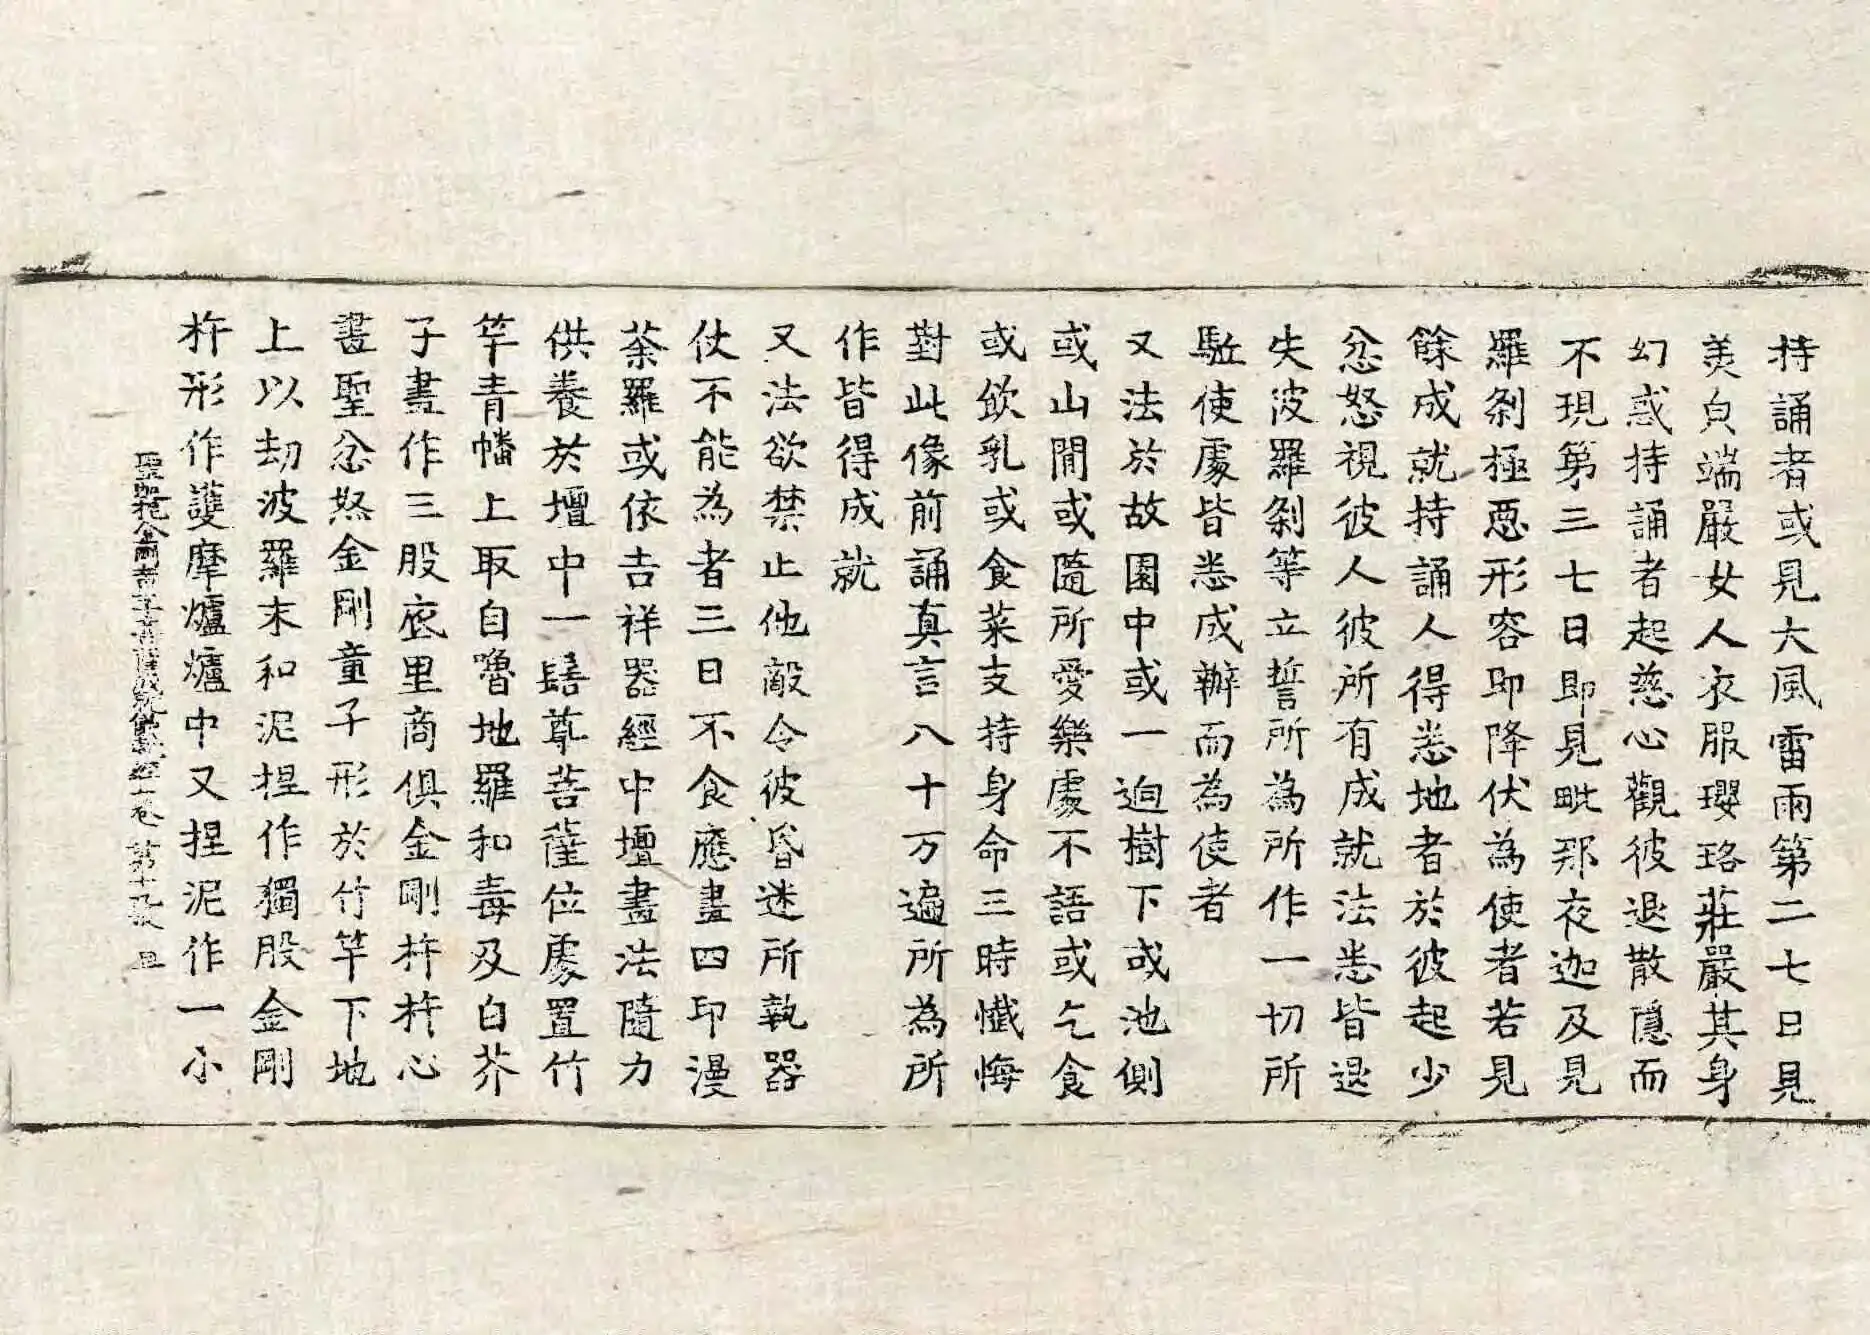 持誦者或見大風雷雨第二七日見
美皃端嚴女人衣服瓔珞莊嚴其身
幻惑持誦者起慈心觀彼退散隱而
不現第三七日即見毗那夜迦及見
羅剎極惡形容即降伏為使者若見
餘成就持誦人得悉地者於彼起少
忿怒視彼人彼所有成就法悉皆退
失波羅剎等立誓所為所作一切所
駈使處皆悉成辦而為使者
又法於故園中或一逈樹下或池側
或山閒或隨所愛樂處不語或乞食
或飲乳或食菜支持身命三時懺悔
對此像前誦真言八十万遍所為所
作皆得成就
又法欲禁止他敵令彼昏迷所執器
仗不能為者三日不食應畫四印漫
荼羅或依吉祥器經中壇畫法隨力
供養於壇中一髻尊菩薩位處置竹
竿青幡上取自嚕地羅和毒及白芥
子畫作三股底里商俱金剛杵杵心
畫聖忿怒金剛童子形於竹竿下地
上以劫波羅末和泥捏作獨股金剛
杵形作護摩爐爐中又捏泥作一小
聖迦抳金剛童子菩薩成就儀軌經上卷 第十九張 且